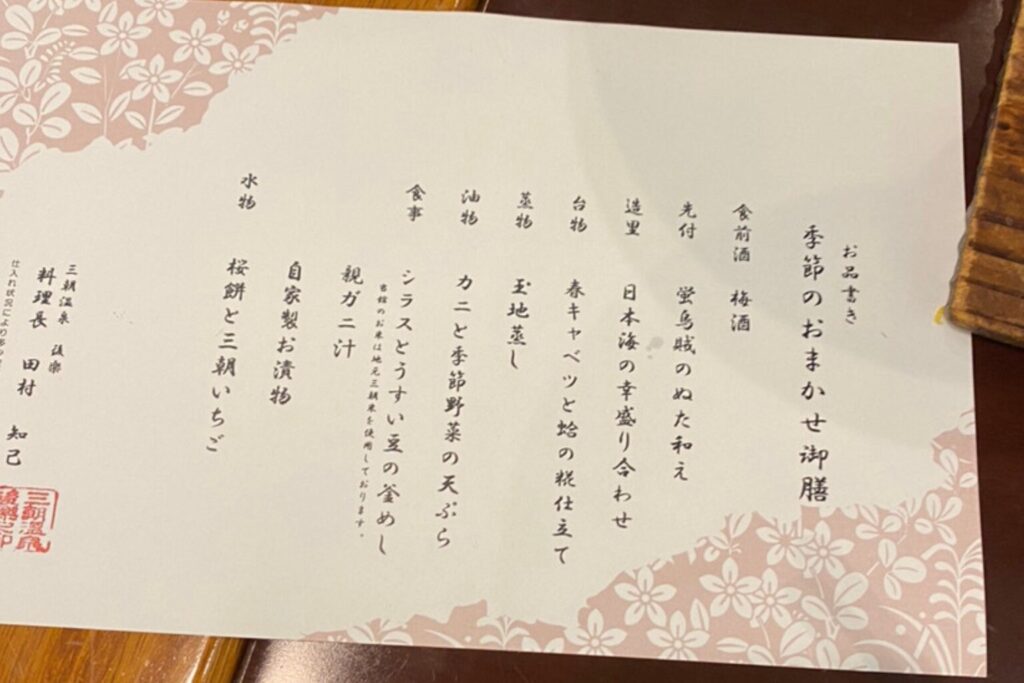 お品書き
季節のおまかせ御膳
食前酒 梅酒
先付 蛍烏賊のぬた和え
造里 日本海の幸盛り合わせ
台物 春キャベツと蛤の糀仕立て
蒸物 玉地蒸し
油物 カニと季節野菜の天ぷら
食事 シラスとうすい豆の釜めし
当館のお米は地元三朝米を使用しております。
親ガニ汁
自家製お漬物
水物 桜餅と三朝いちご
三朝温泉 後楽
料理長 田村 知己
仕入れ状況により
三朝温泉
後樂之印